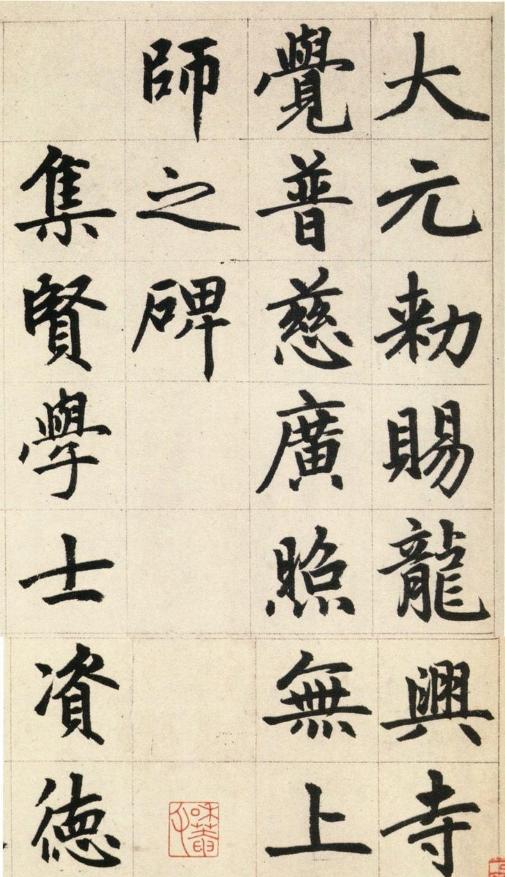 大元勑賜龍興寺
覺普慈廣照無上
師之碑
集賢學士資德